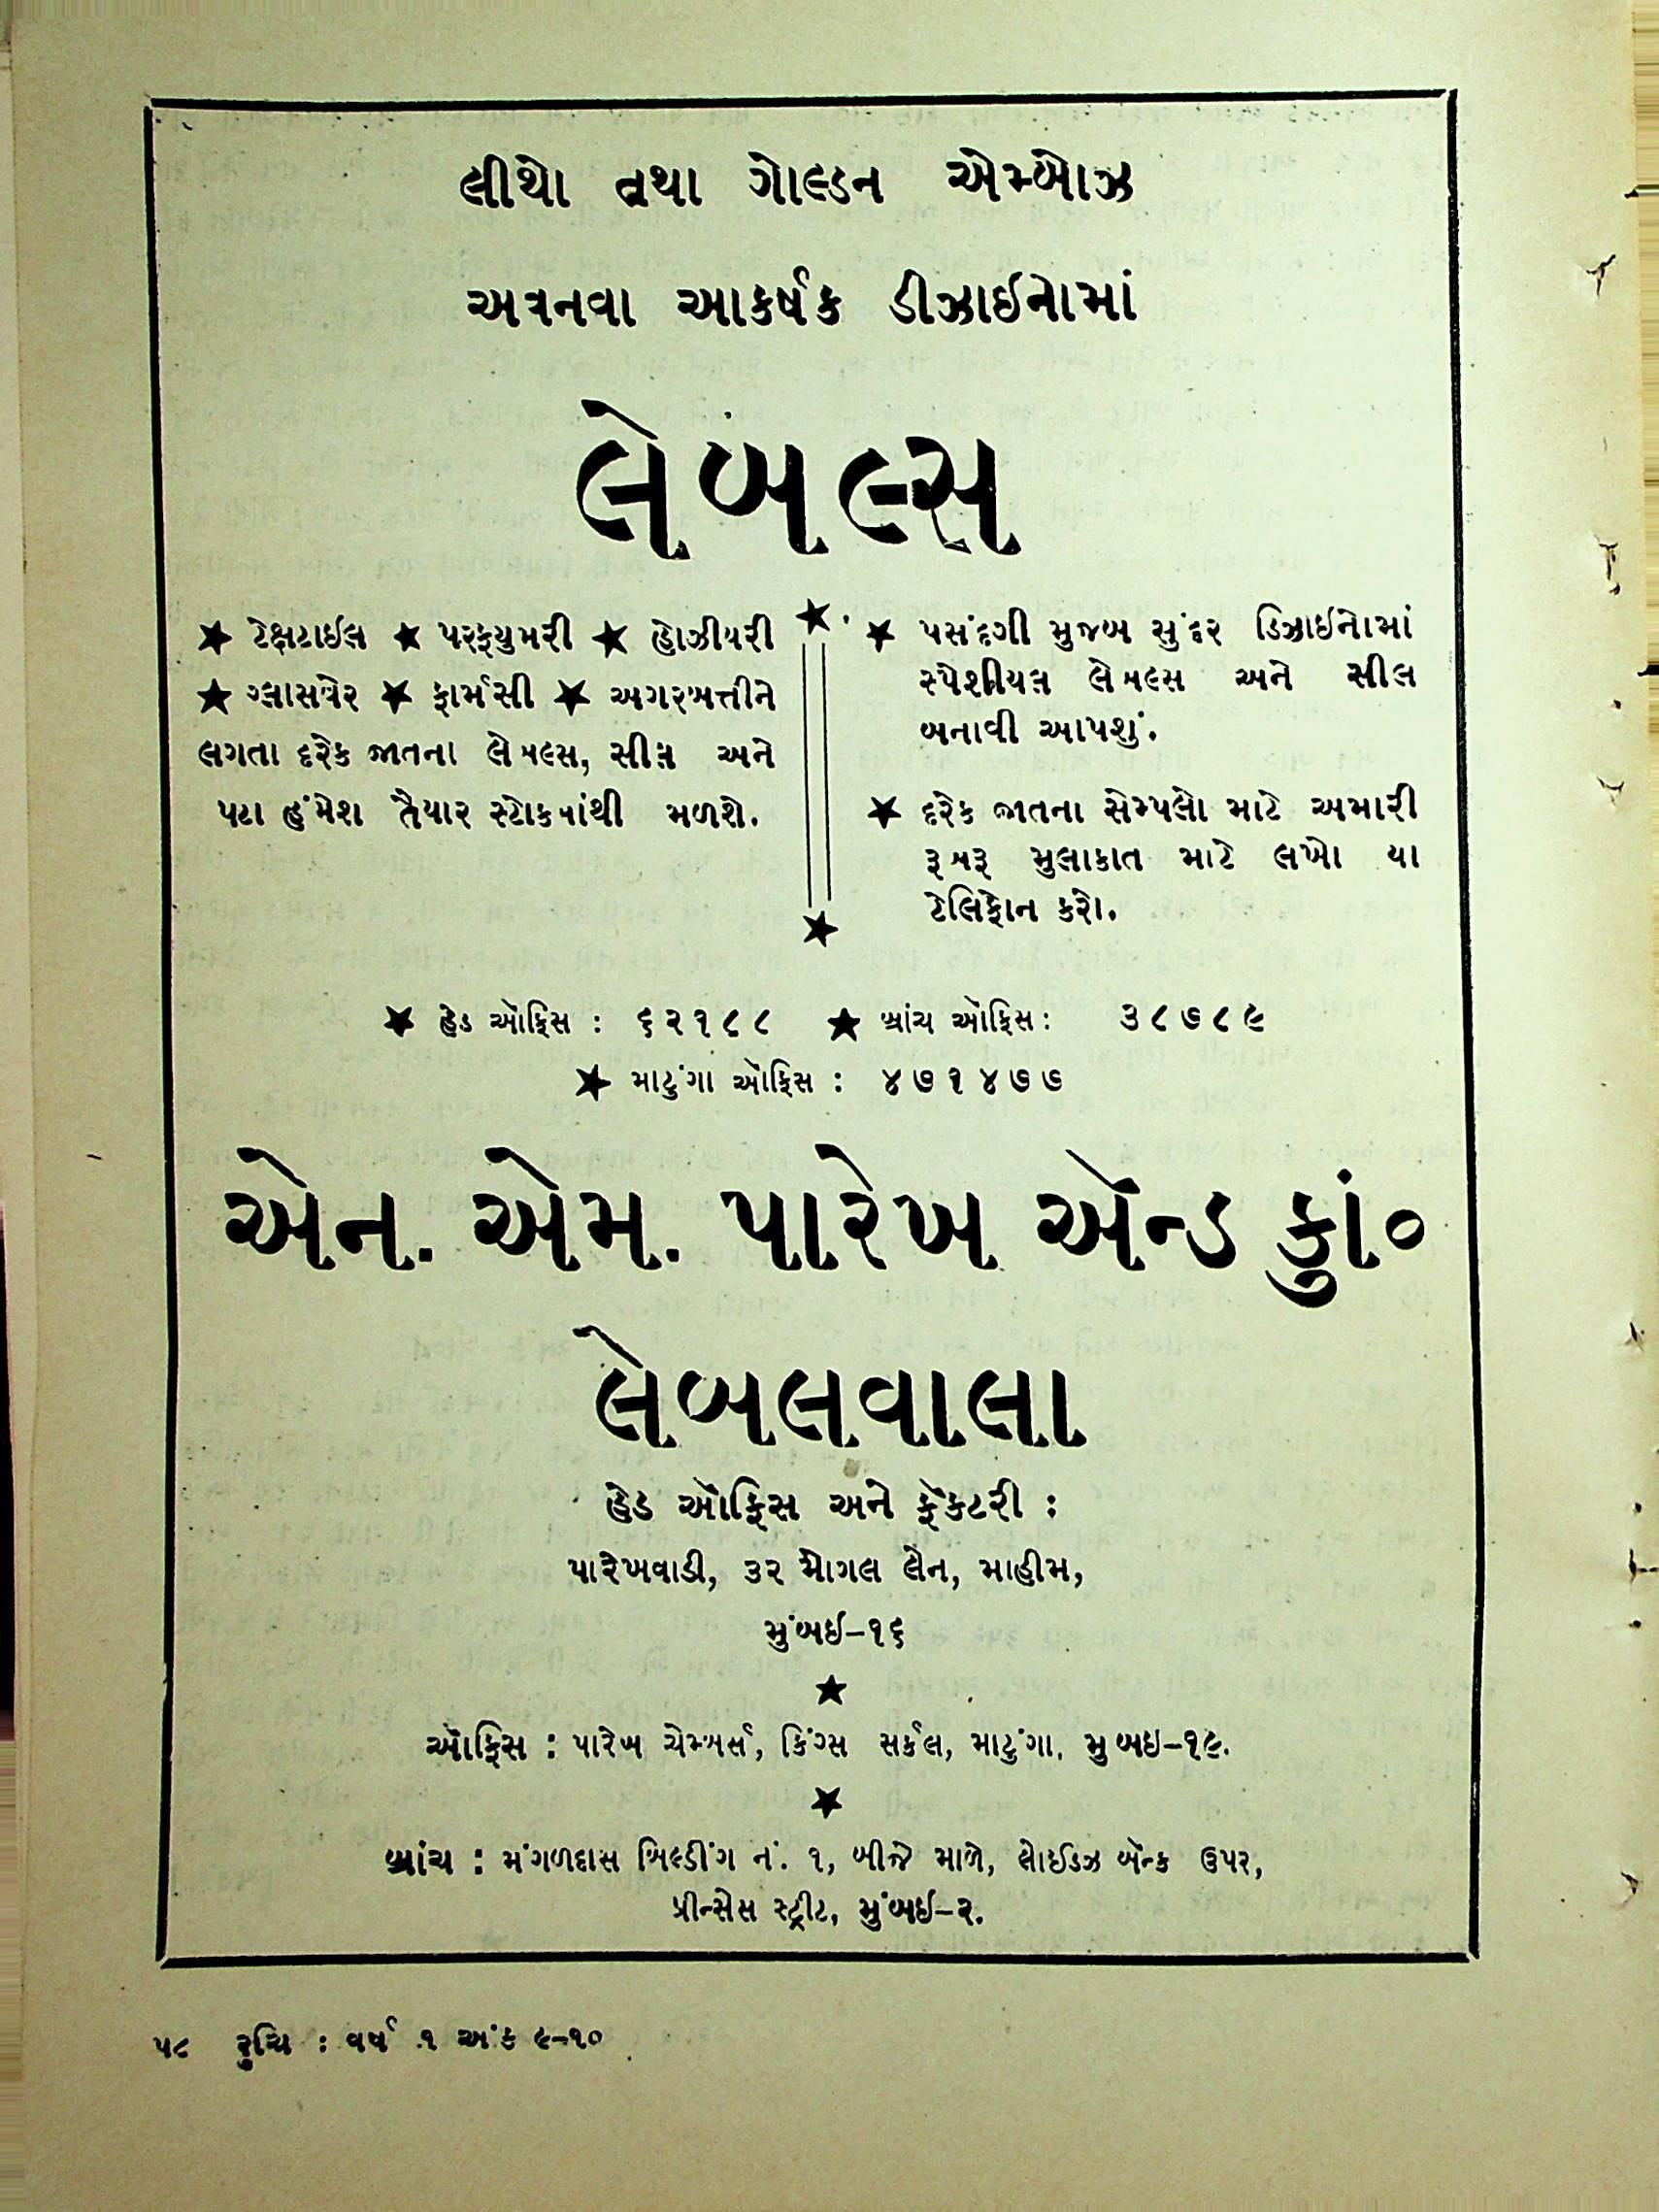 લીથો તથા ગોલ્ડન એમ્બોઝ
અવનવા આકર્ષક ડીઝાઇનોમાં
લેબલ્સ
★ ટેક્ષટાઈલ ★ પરફ્યુમરી ★ હોઝીયરી
★ ગ્લાસવેર ★ ફાર્મસી ★ અગરબત્તીને
લગતા દરેક જાતના લેબલ્સ, સીલ અને
પટા હંમેશ તૈયાર સ્ટોકમાંથી મળશે.
★ પસંદગી મુજબ સુંદર ડિઝાઇનોમાં
સ્પેશીયલ લેબલ્સ અને સીલ
બનાવી આપશું.
★ દરેક જાતના સેમ્પલો માટે અમારી
રૂબરૂ મુલાકાત માટે લખો યા
ટેલિફોન કરો.
★ હેડ ઑફિસ : ૬૨૧૮૮ ★ બ્રાંચ ઑફિસ : ૩૮૭૮૯
★ માટુંગા ઑફિસ : ૪૭૧૪૭૭
એન. એમ. પારેખ ઍન્ડ કું૦
લેબલવાલા
હેડ ઑફિસ અને ફૅક્ટરી :
પારેખવાડી, ૩૨ મોગલ લેન, માહીમ,
મુંબઇ–૧૬
★
ઑફિસ : પારેખ ચેમ્બર્સ, કિંગ્સ સર્કલ, માટુંગા, મુંબઇ–૧૯.
★
બ્રાંચ : મંગળદાસ બિલ્ડીંગ નં. ૧, બીજે માળે, લોઈડઝ બૅન્ક ઉપર,
પ્રીન્સેસ સ્ટ્રીટ, મુંબઇ–૨.
૫૮ રુચિ : વર્ષ ૧ અંક ૯–૧૦